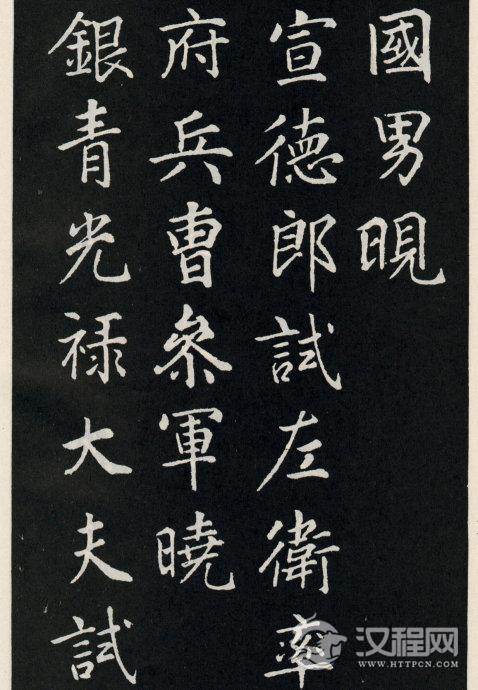 國男晛
宣德郎試左衛率
府兵曹叅軍曉
銀青光禄大夫試
汉程网
WWW.HTTPCN.COM